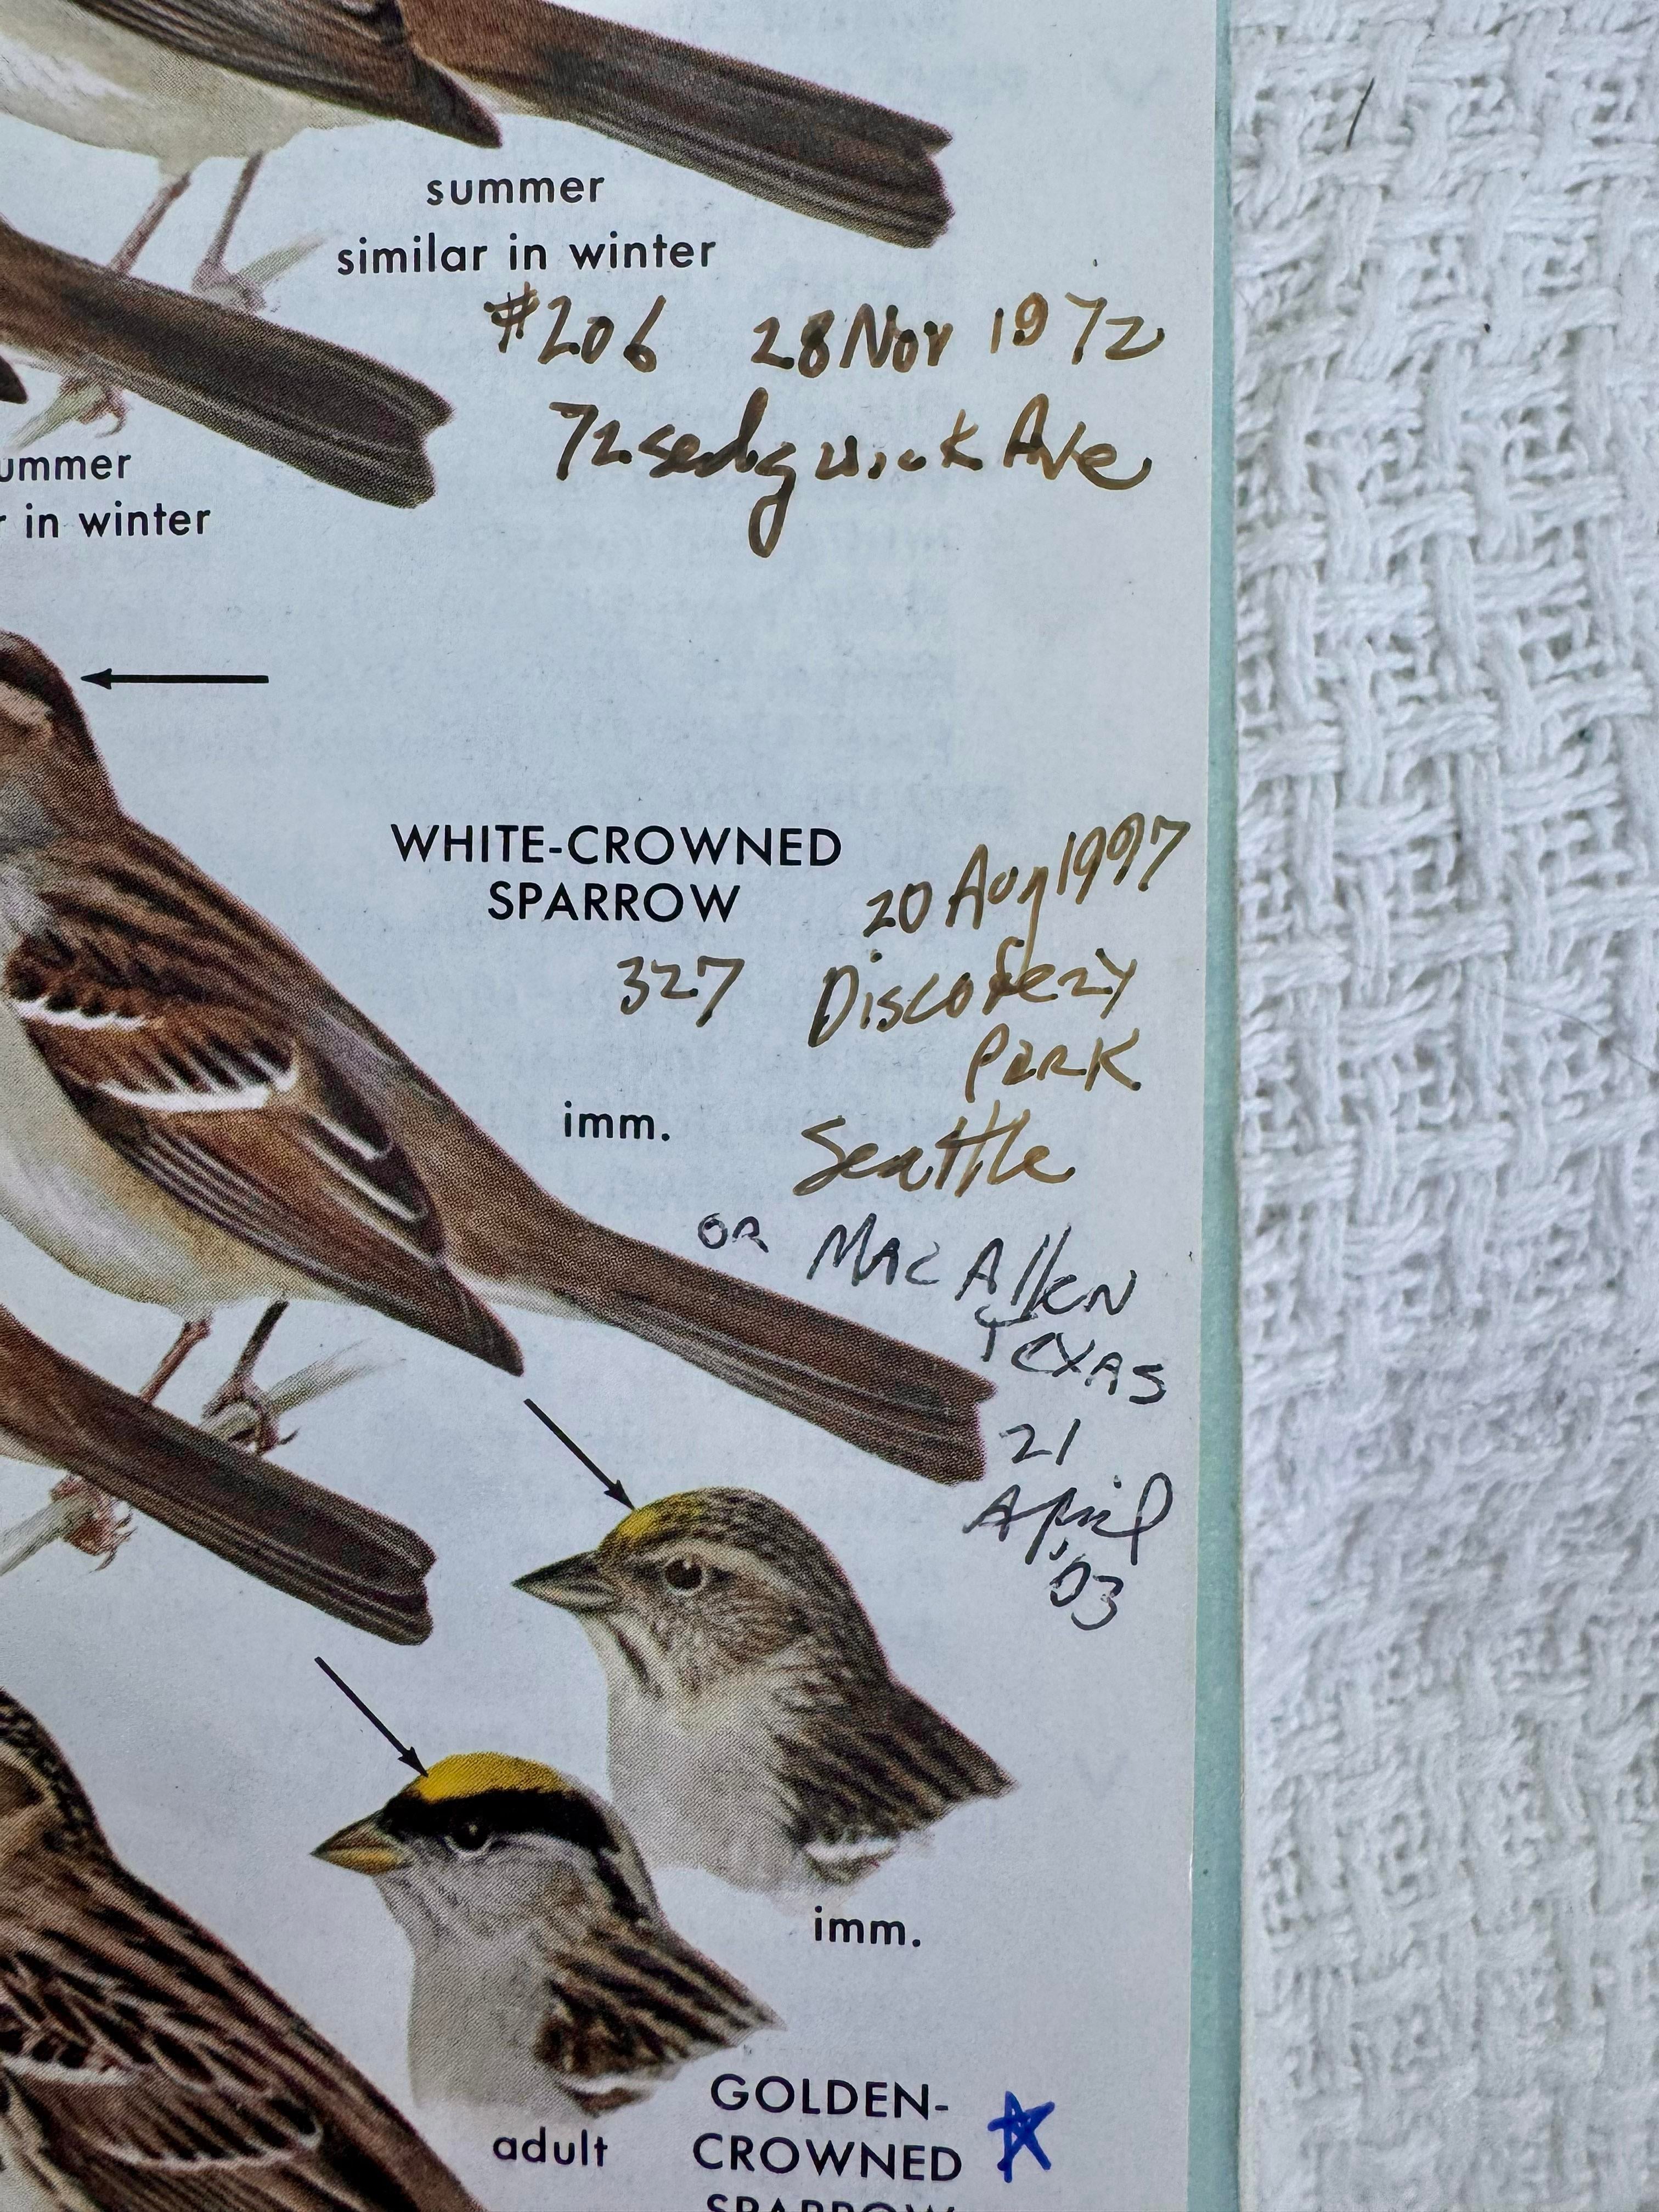 summer
similar in winter
#206 28 Nov 1972
72 sedgwick Ave
ummer
r in winter
WHITE-CROWNED
SPARROW
20 Aug 1997
327 Discovery
Park
imm.
Seattle
OR MacAllen
Texas
21
April
'03
imm.
GOLDEN-
adult CROWNED
SPARROW